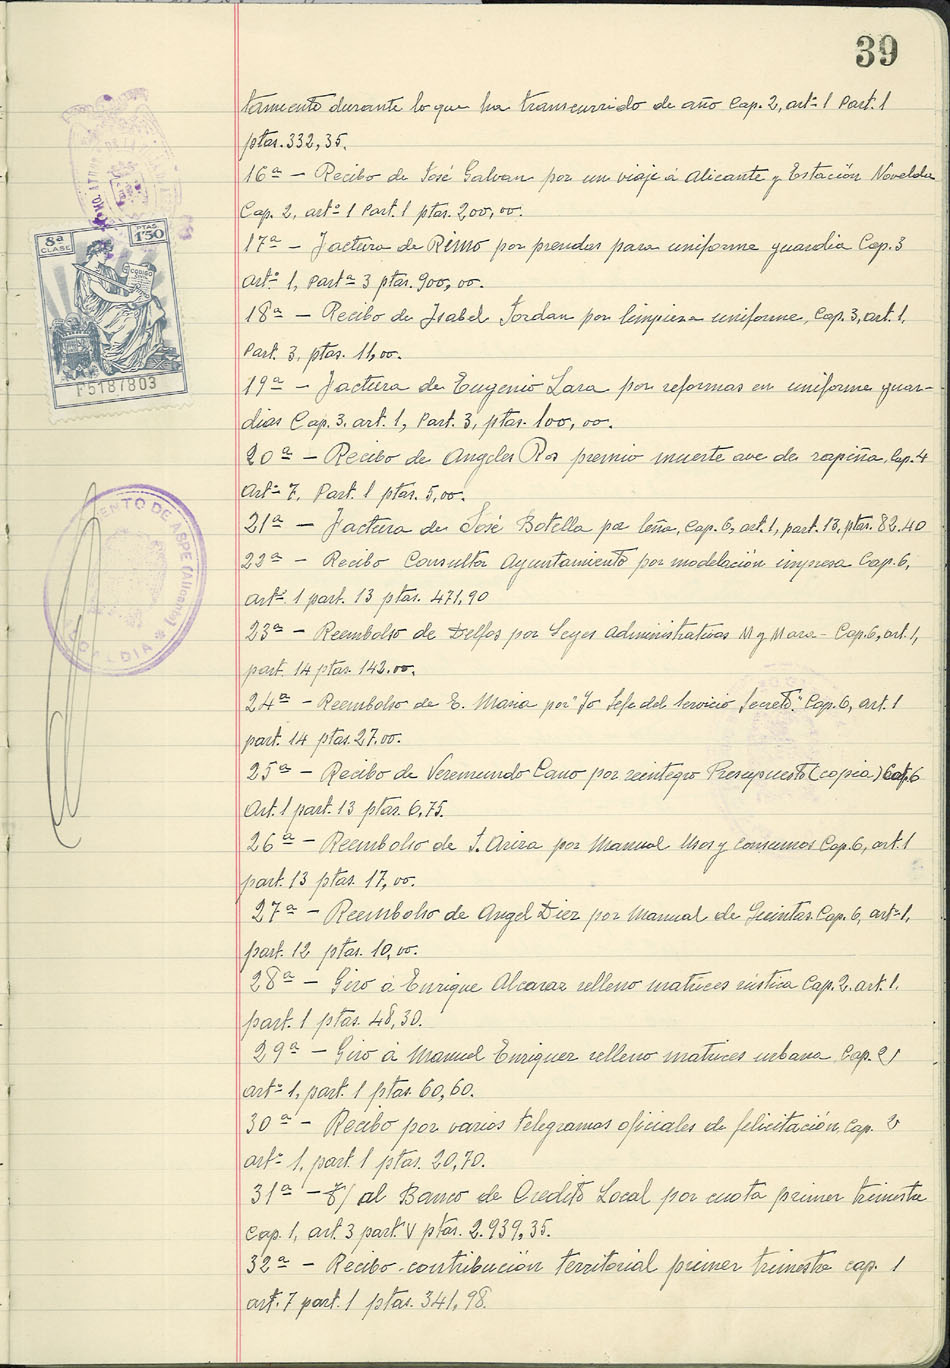 39
tamiento durante lo que ha transcurrido de año Cap. 2, artº 1 Part. 1
ptas. 332,35.
16ª - Recibo de José Galvan por un viaje á Alicante y Estación Novelda
Cap. 2, artº 1 Part. 1 ptas. 200,00.
17ª - Factura de Rimo por prendas para uniforme guardia Cap. 3
artº 1, Partª 3 ptas. 900,00.
18ª - Recibo de Isabel Jordan por limpieza uniforme, Cap. 3, art. 1,
Part. 3, ptas. 11,00.
19ª - Factura de Eugenio Lara por reformas en uniforme guar-
dias Cap. 3. art. 1, Part. 3, ptas. 100,00.
20ª - Recibo de Angeles Ros premio muerte ave de rapiña, Cap. 4
Artº 7, Part. 1 ptas. 5,00.
21ª - Factura de José Botella por leña, Cap. 6, art. 1, part. 13, ptas. 82.40
22ª - Recibo Consultor Ayuntamiento por modelación impresa Cap. 6,
artº. 1 part. 13 ptas. 471,90
23ª - Reembolso de Delfos por Leyes Administrativas M y Mara - Cap. 6, art. 1,
part. 14 ptas. 142.00.
24ª - Reembolso de E. Maria por "Yo Jefe del Servicio Secreto." Cap. 6, art. 1
part. 14 ptas. 27.00.
25ª - Recibo de Veremundo Cano por reintegro Presupuesto (copia) Cap. 6
Art. 1 part. 13 ptas. 6,75.
26ª - Reembolso de J. Ariza por Manual Usos y consumos Cap. 6, art. 1
part. 13 ptas. 17,00.
27ª - Reembolso de Angel Diez por Manual de Quintas. Cap. 6, artº 1,
part. 12 ptas. 10,00.
28ª - Giro á Enrique Alcaraz relleno matrices rústica Cap. 2. art. 1.
part. 1 ptas. 48,30.
29ª - Giro á Manuel Enriquez relleno matrices urbana Cap. 2,
artº 1, part. 1 ptas. 60,60.
30ª - Recibo por varios telegramas oficiales de felicitación, Cap. 2
artº 1, part. 1 ptas. 20,70.
31ª - al Banco de Credito Local por cuota primer trimestre
Cap. 1, art. 3 part. V ptas. 2.939,35.
32ª - Recibo contribución territorial primer trimestre cap. 1
art. 7 part. 1 ptas. 341,98.
8ª CLASE
PTAS 1'50
CODIGO
F5187803
AYUNTAMIENTO DE ASPE (Alicante)
ALCALDIA